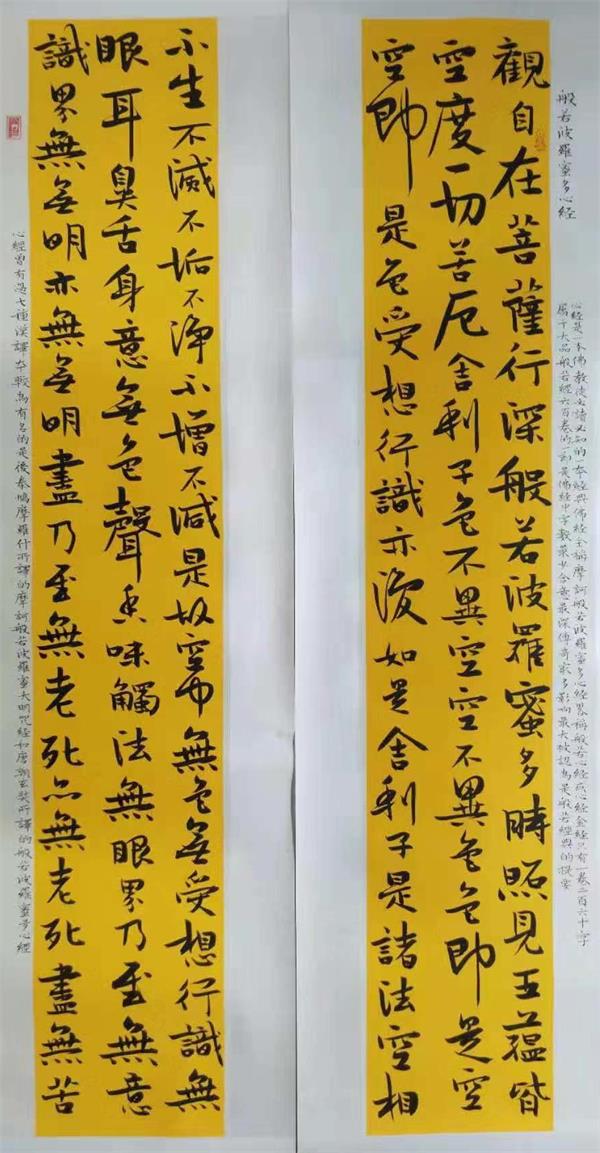 般若波羅蜜多心經
心經是一本佛教徒必讀必知的一本經典佛經全稱摩訶般若波羅蜜多心經畧稱般若心經或心經全經只有一卷二百六十字
屬于大品般若經六百卷的一部是佛經中字數最少含意最深傳奇最多影响最大被認為是般若經典的提要
觀自在菩薩行深般若波羅蜜多時照見五蘊皆
空度一切苦厄舍利子色不異空空不異色色即是空
空即是色受想行識亦復如是舍利子是諸法空相
不生不滅不垢不淨不增不減是故空中無色無受想行識無
眼耳鼻舌身意無色聲香味觸法無眼界乃至無意
識界無無明亦無無明盡乃至無老死亦無老死盡無苦
心經曾有過七種漢譯本較為有名的是後秦鳩摩羅什所譯的摩訶般若波羅蜜大明咒經和唐朝玄奘所譯的般若波羅蜜多心經